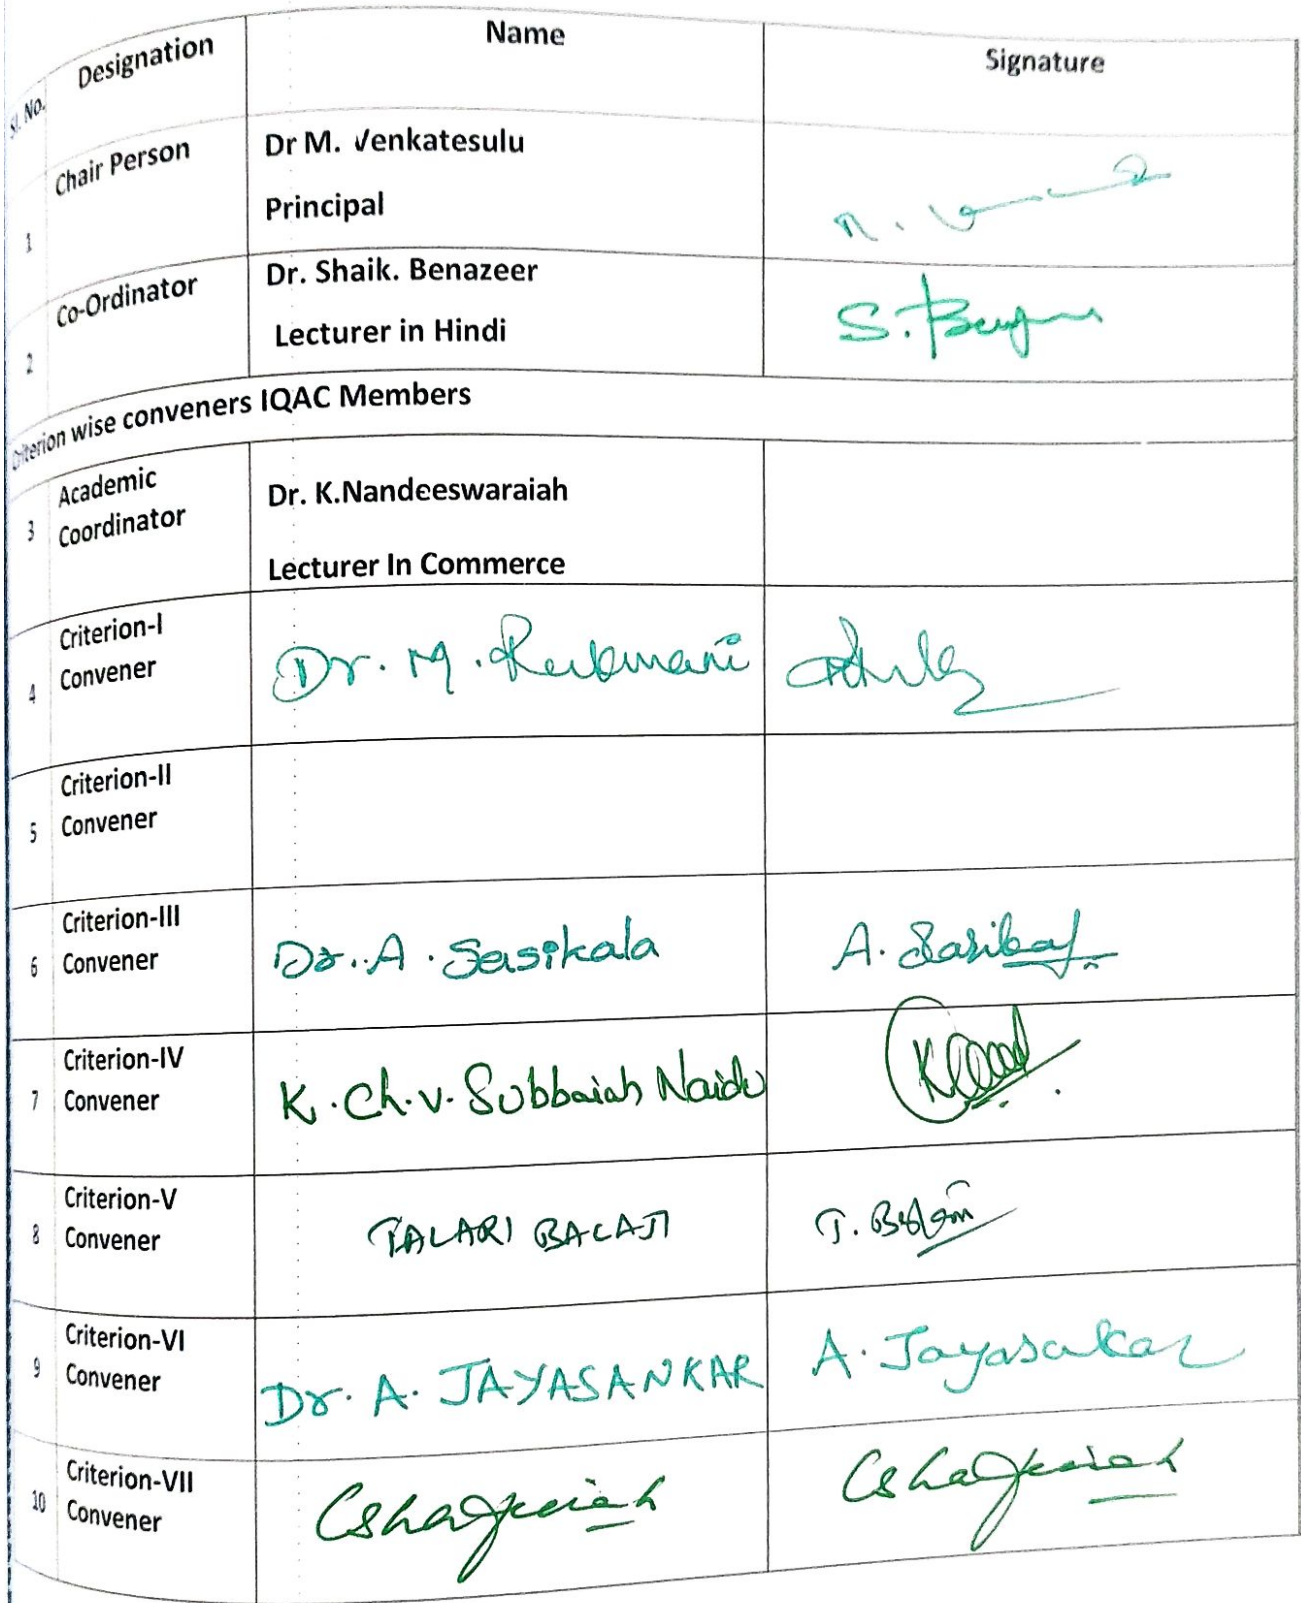 Sl. No. Designation Name Signature
Chair Person Dr M. Venkatesulu
1 Principal
Co-Ordinator Dr. Shaik. Benazeer
2 Lecturer in Hindi S.
Criterion wise conveners IQAC Members
Academic
3 Coordinator Dr. K.Nandeeswaraiah
Lecturer In Commerce
Criterion-I
4 Convener Dr. M. Rukmani
Criterion-II
5 Convener
Criterion-III
6 Convener Dr. A. Sasikala A. Sasikala
Criterion-IV
7 Convener K. Ch. V. Subbaiah Naidu
Criterion-V
8 Convener TALARI BALAJI T.
Criterion-VI
9 Convener Dr. A. JAYASANKAR A. Jayasakar
Criterion-VII
10 Convener